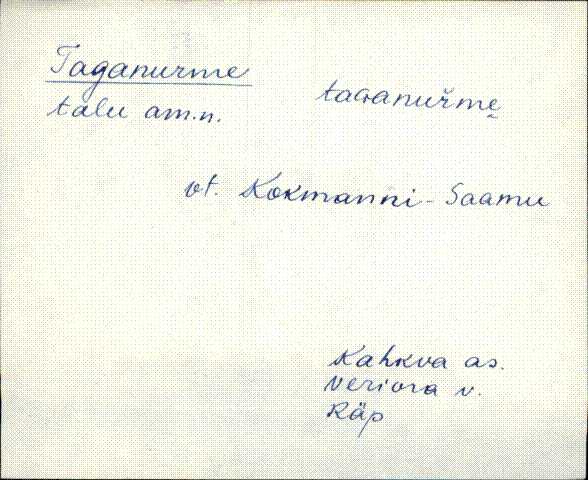 Taganurme
taGanuřmę
talu am.n.
vt. Kokmanni-Saamu
Kahkva as.
Veriora v.
Räp